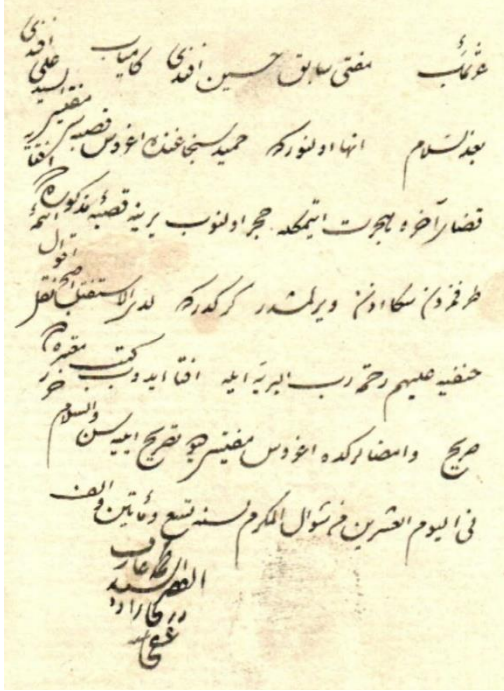 عزتمآب مفتی سابق حسین افندی کامیاب
بعد السلام انها اولنور که حمید سنجاغنده اغروس قصبه سی مفتیسی السید علی افندی
قضای آخره هجرت ایتمکله حجر اولنوب یرینه قصبهٔ مذکوره ده افتا
طرفمزدن سکا اذن ویرلمشدر کرکدر که لدی الاستفتا اصح اقوال ائمهٔ
حنفیه علیهم رحمة رب البریه ایله افتا ایدوب کتب معتبره دن نقل
صریح و امضالرکده اغروس مفتیسی دیو تصریح ایلیه سن والسلام
فی الیوم العشرین من شوال المکرم لسنه تسع و مأتین والف
الفقیر
دری زاده
عفی عنه